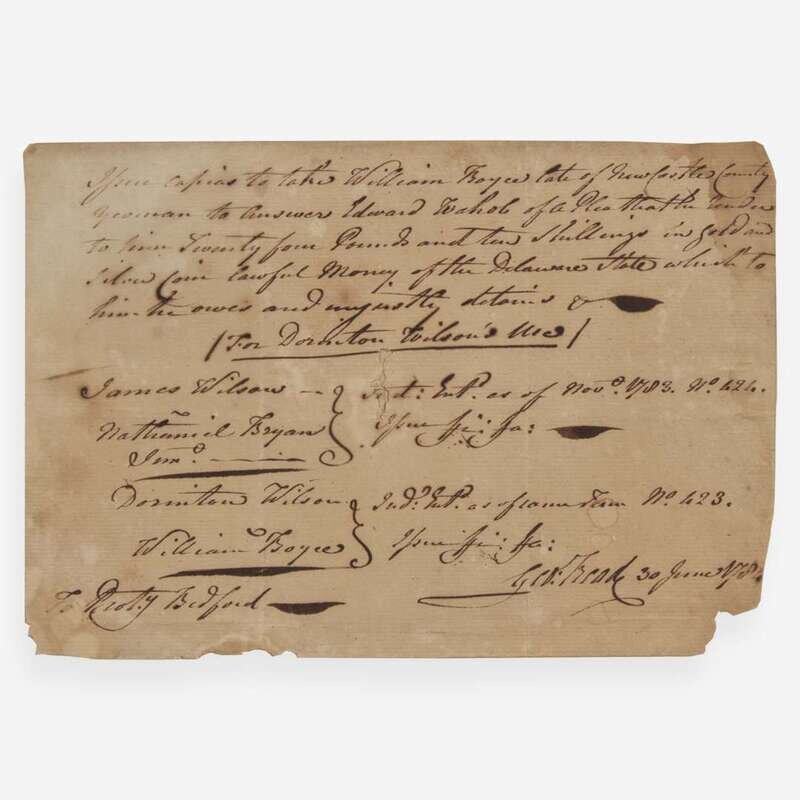 Issue capias to take William Boyce late of New Castle County
Yeoman to answer Edward Wahob of a Plea that he render
to him Twenty four Pounds and ten Shillings in gold and
silver coin lawful Money of the Delaware State which to
him he owes and unjustly detains &
(For Dorinton Wilson's Use)
James Wilson
v
Nathaniel Bryan
Junr.
} Judt. Entd. as of Novr. 1783. No. 424.
Issue fi: fa:
Dorinton Wilson
v
William Boyce
} Judt. Entd. as of same Term No. 423.
Issue fi: fa:
Geo. Read 30 June 178
To Proty Bedford